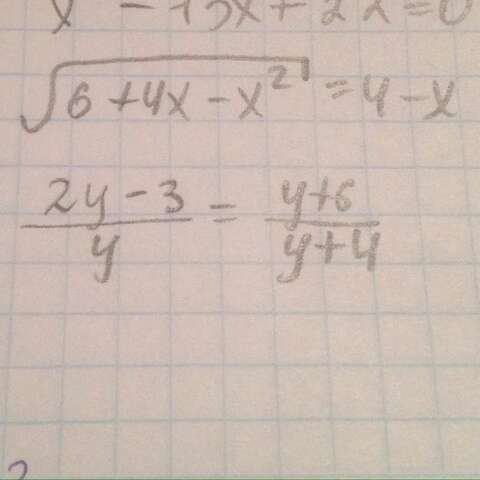 x² - 13x + 22 = 0
√(6 + 4x - x²) = 4 - x
(2y - 3)/y = (y + 6)/(y + 4)